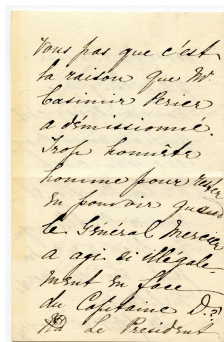 vous pas que c'est
la raison que Mr.
Casimir Perier
a démissionné
Trop honnête
homme pour rester
en pouvoir quand
le Général Mercier
a agi si illégale-
ment en face
du Capitaine D.?
Le Président